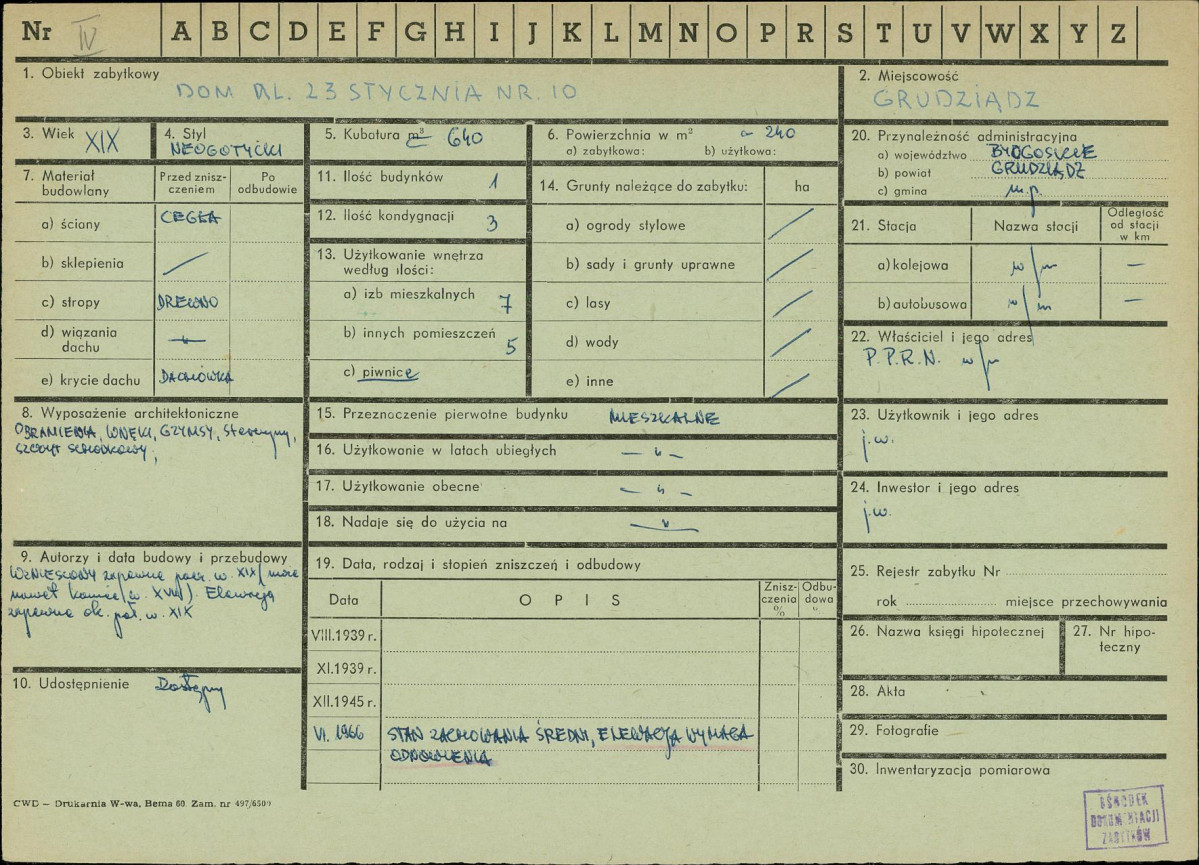 Nr IV A B C D E F G H I J K L M N O P R S T U V W X Y Z
1. Obiekt zabytkowy
DOM AL. 23 STYCZNIA NR. 10
2. Miejscowość
GRUDZIĄDZ
3. Wiek XIX
4. Styl
NEOGOTYCKI
5. Kubatura m³ 640
6. Powierzchnia w m² ~ 240
a) zabytkowa: b) użytkowa:
7. Materiał budowlany
Przed zniszczeniem
Po odbudowie
a) ściany CEGŁA
b) sklepienia
c) stropy DREWNO
d) wiązania dachu — „ —
e) krycie dachu DACHÓWKA
8. Wyposażenie architektoniczne
OBRAMIENIA, WNĘKI, GZYMSY,
SZCZYT SCHODKOWY;
9. Autorzy i data budowy i przebudowy
WZNIESIONY zapewne pocz. w. XIX (może
nawet koniec w. XVIII). Elewacja
zapewne ok. poł. w. XIX
10. Udostępnienie Dostępny
11. Ilość budynków 1
12. Ilość kondygnacji 3
13. Użytkowanie wnętrza
według ilości:
a) izb mieszkalnych 7
b) innych pomieszczeń 5
c) piwnice
14. Grunty należące do zabytku: ha
a) ogrody stylowe
b) sady i grunty uprawne
c) lasy
d) wody
e) inne
15. Przeznaczenie pierwotne budynku MIESZKALNE
16. Użytkowanie w latach ubiegłych — „ —
17. Użytkowanie obecne — „ —
18. Nadaje się do użycia na — „ —
19. Data, rodzaj i stopień zniszczeń i odbudowy
Data OPIS Zniszczenia % Odbudowa „
VIII.1939 r.
XI.1939 r.
XII.1945 r.
VI. 1966 STAN ZACHOWANIA ŚREDNI, ELEWACJA WYMAGA
ODNOWIENIA
20. Przynależność administracyjna
a) województwo BYDGOSKIE
b) powiat GRUDZIĄDZ
c) gmina m.p.
21. Stacja Nazwa stacji Odległość od stacji w km
a) kolejowa w/m —
b) autobusowa w/m —
22. Właściciel i jego adres
P.P.R.N. w/m
23. Użytkownik i jego adres
j.w.
24. Inwestor i jego adres
j.w.
25. Rejestr zabytku Nr
rok miejsce przechowywania
26. Nazwa księgi hipotecznej
27. Nr hipoteczny
28. Akta
29. Fotografie
30. Inwentaryzacja pomiarowa
CWD – Drukarnia W-wa, Bema 60. Zam. nr 497/6500
OŚRODEK
DOKUMENTACJI
ZABYTKÓW